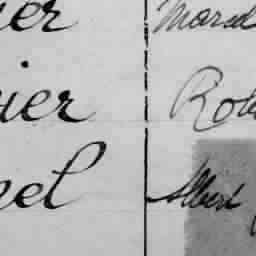 ier Marcel
ier Rob
nel Albert